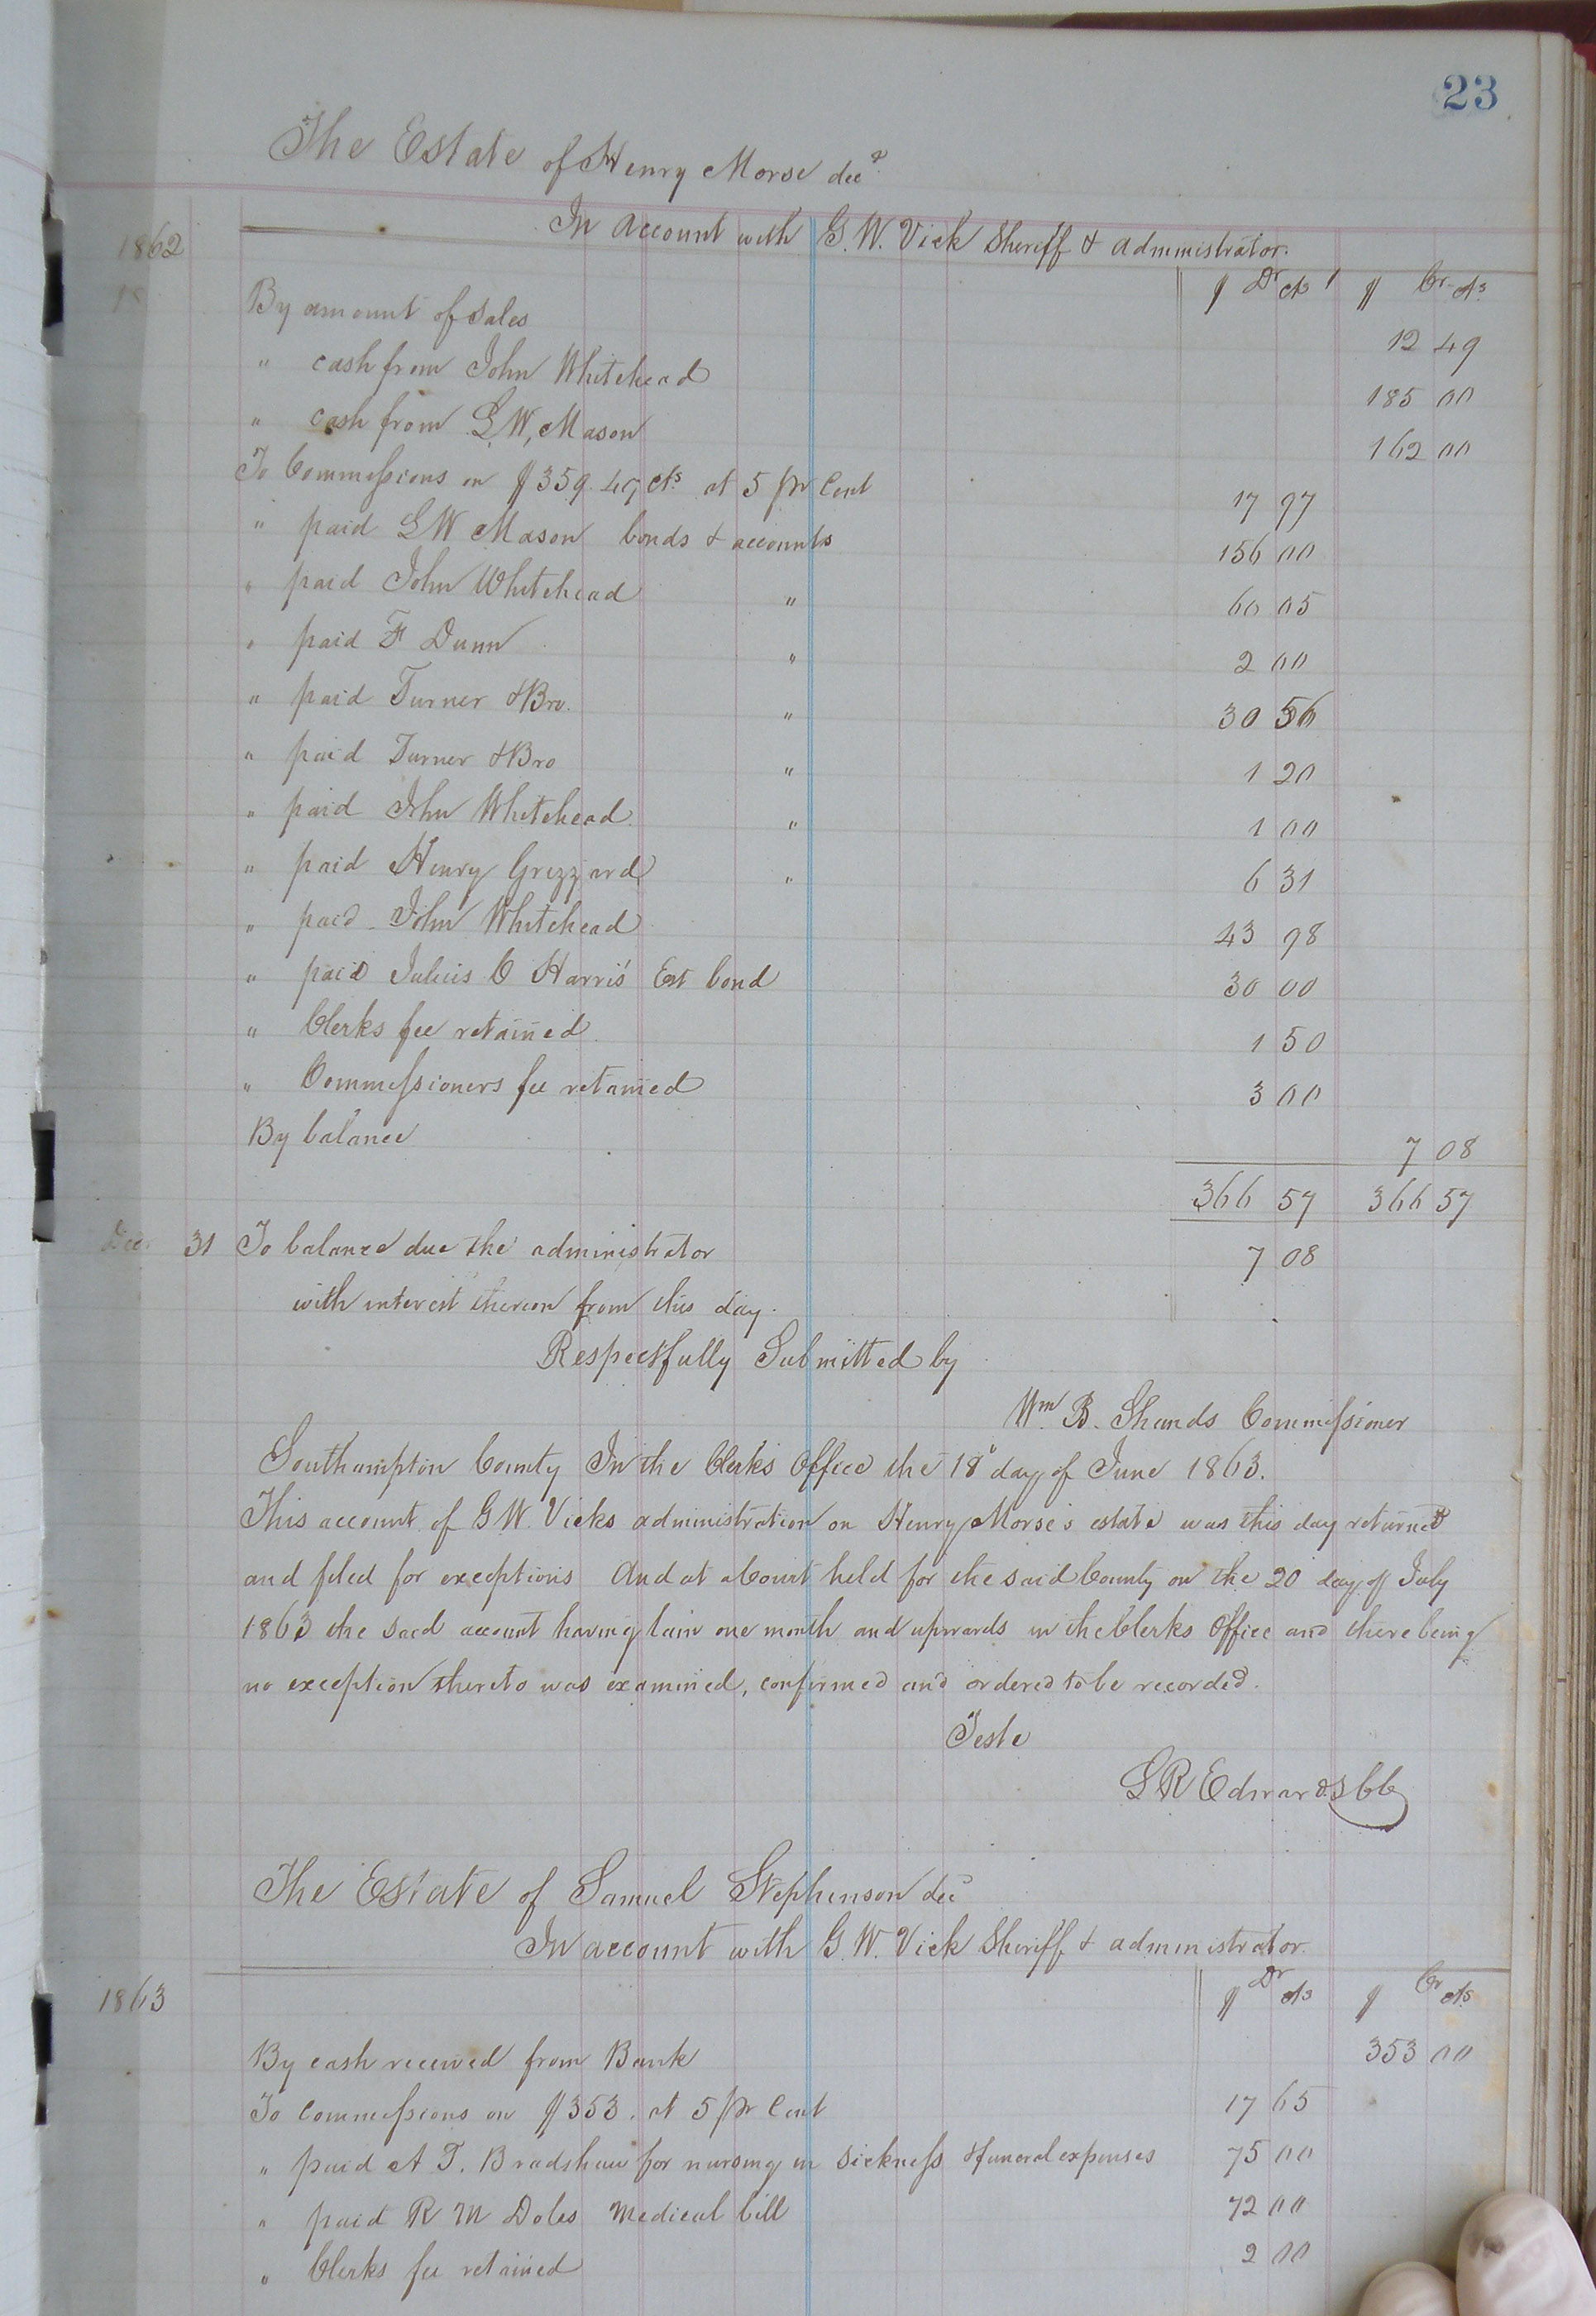 23
The Estate of Henry Morse decd
1862 In account with G. W. Vick Sheriff & administrator.
$ Dr cts $ Cr cts
By amount of sales 12 49
" cash from John Whitehead 185 00
" cash from L. W. Mason 162 00
To Commissions on $359.49 cts at 5 pr Cent 17 97
" paid L W Mason bonds & accounts 156 00
" paid John Whitehead " 60 05
" paid F Dunn " 2 00
" paid Turner & Bro. " 30 56
" paid Turner & Bro " 1 20
" paid John Whitehead " 1 00
" paid Henry Grizzard " 6 31
" paid John Whitehead 43 98
" paid Julius C Harris' Est bond 30 00
" Clerks fee retained 1 50
" Commissioners fee retained 3 00
By balance 7 08
366 57 366 57
Dec 31 To balance due the administrator 7 08
with interest thereon from this day.
Respectfully Submitted by
Wm B. Shands Commissioner
Southampton County In the Clerks Office the 18 day of June 1863.
This account of G W. Vicks administration on Henry Morse's estate was this day returned
and filed for exceptions And at a Court held for the said County on the 20 day of July
1863 the said account having lain one month and upwards in the Clerks Office and there being
no exception thereto was examined, confirmed and ordered to be recorded.
Teste
L R Edwards CC
The Estate of Samuel Stephenson decd
In account with G. W. Vick Sheriff & administrator.
1863 $ Dr cts $ Cr cts
By cash received from Bank 353 00
To Commissions on $353. at 5 pr Cent 17 65
" paid A T. Bradshaw for nursing in sickness & funeral expenses 75 00
" paid R M Doles Medical bill 72 00
" Clerks fee retained 2 00